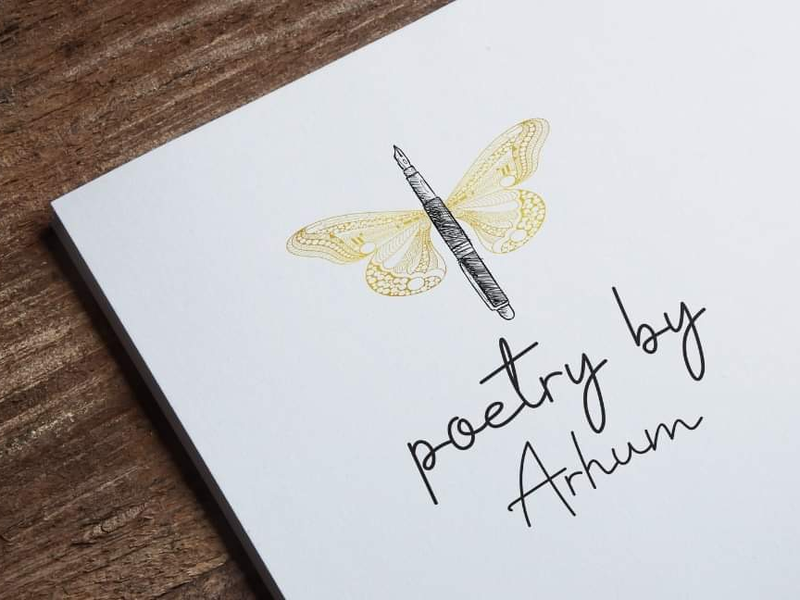 poetry by
Arhum